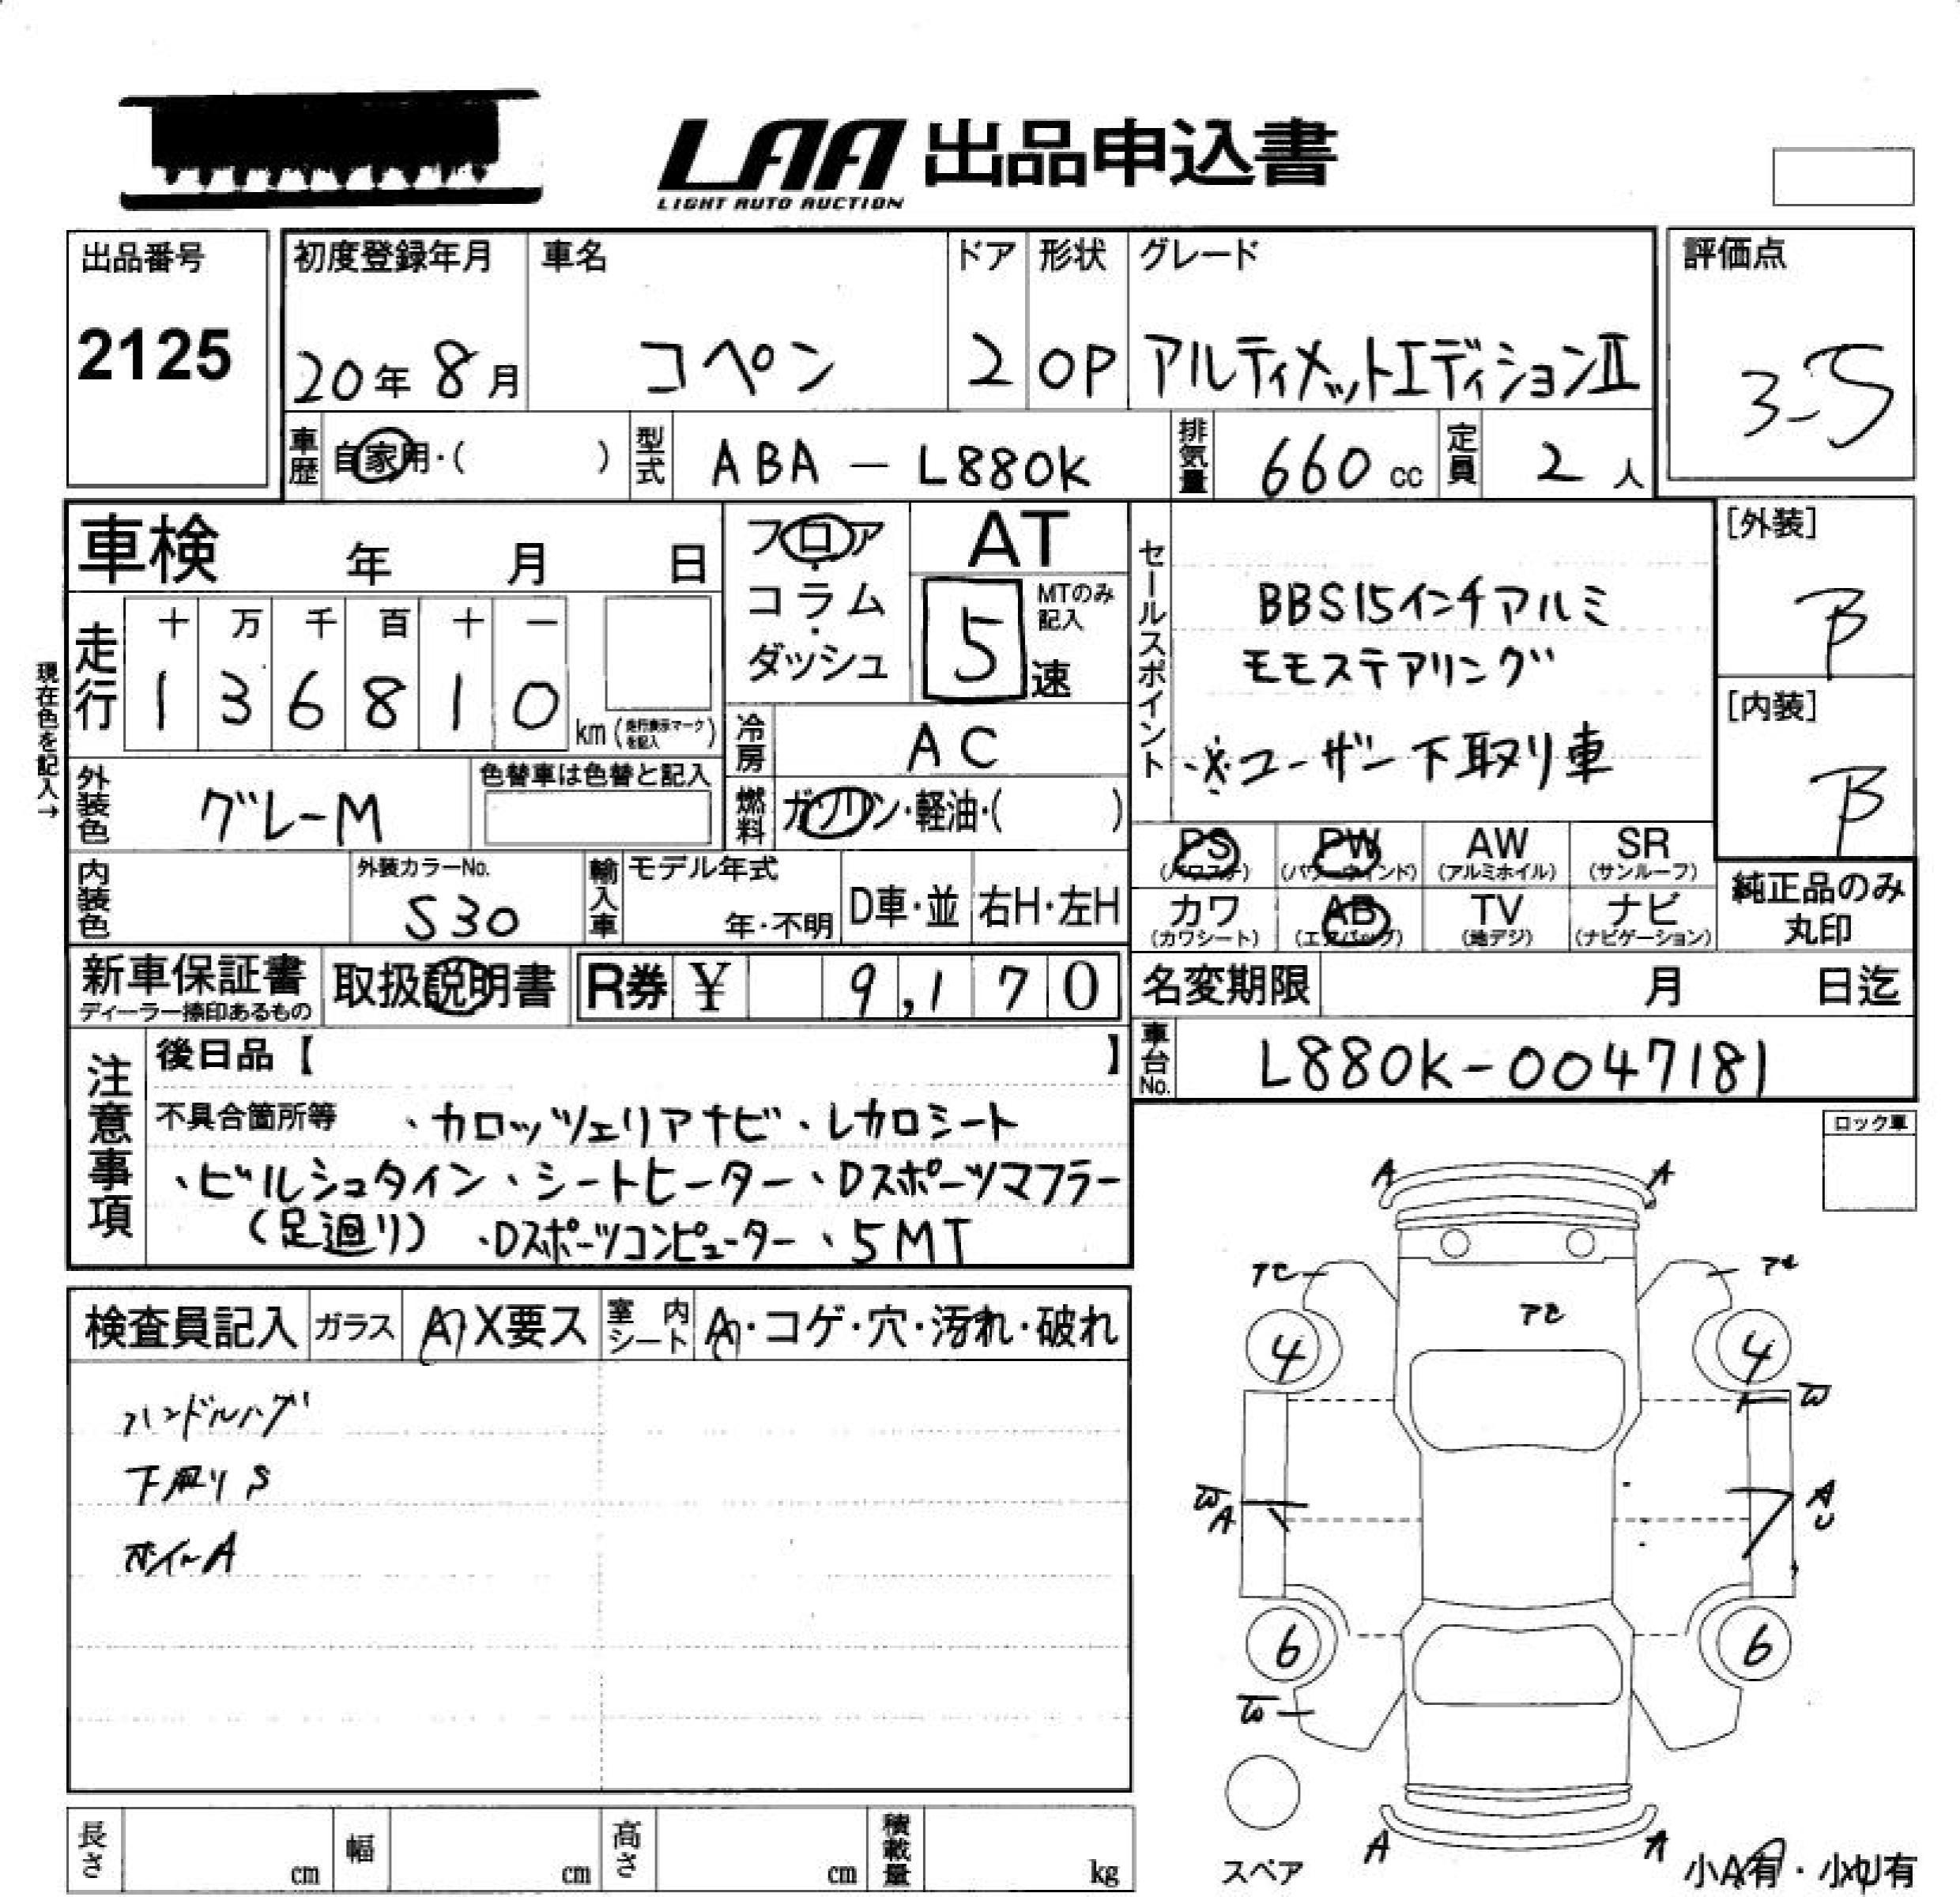 LAA 出品申込書
LIGHT AUTO AUCTION
出品番号
2125
初度登録年月
20年 8月
車名
コペン
ドア
2
形状
OP
グレード
アルティメットエディションⅡ
評価点
3.5
車歴 自家用・( )
型式 ABA - L880K
排気量 660 cc
定員 2 人
車検 年 月 日
フロア・コラム・ダッシュ
AT
5 速
MTのみ記入
セールスポイント
BBS15インチアルミ
モモステアリング
・※ユーザー下取り車
[外装]
B
[内装]
B
現在色を記入→
走行
十 万 千 百 十 一
1 3 6 8 1 0 km (走行表示マークを記入)
冷房 AC
外装色 グレーM
色替車は色替と記入
燃料 ガソリン・軽油・( )
内装色
外装カラーNo.
S30
輸入車
モデル年式
年・不明
D車・並
右H・左H
PS (パワステ)
PW (パワーウインド)
AW (アルミホイル)
SR (サンルーフ)
カワ (カワシート)
AB (エアバッグ)
TV (地デジ)
ナビ (ナビゲーション)
純正品のみ
丸印
新車保証書
ディーラー捺印あるもの
取扱説明書
R券 ¥ 9,170
名変期限 月 日迄
車台No. L880K-0047181
注意事項
後日品【 】
不具合箇所等 、カロッツェリアナビ、レカロシート
、ビルシュタイン、シートヒーター、Dスポーツマフラー
(足廻り) 、Dスポーツコンピューター、5MT
ロック車
検査員記入
ガラス A X要ス
室内シート A・コゲ・穴・汚れ・破れ
ハンドルハゲ
下廻りS
ホイールA
A A
アセ アセ
アセ
4 4
W
W
A
A
U
6 6
W
スペア
A A
小A有・小U有
長さ cm
幅 cm
高さ cm
積載量 kg